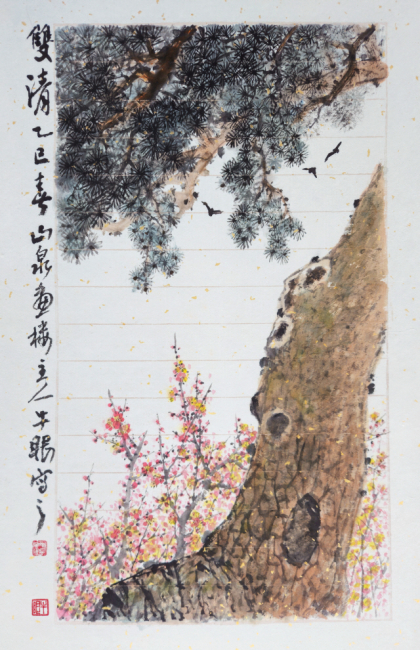 雙清 乙巳春山泉畫樓主人寫之